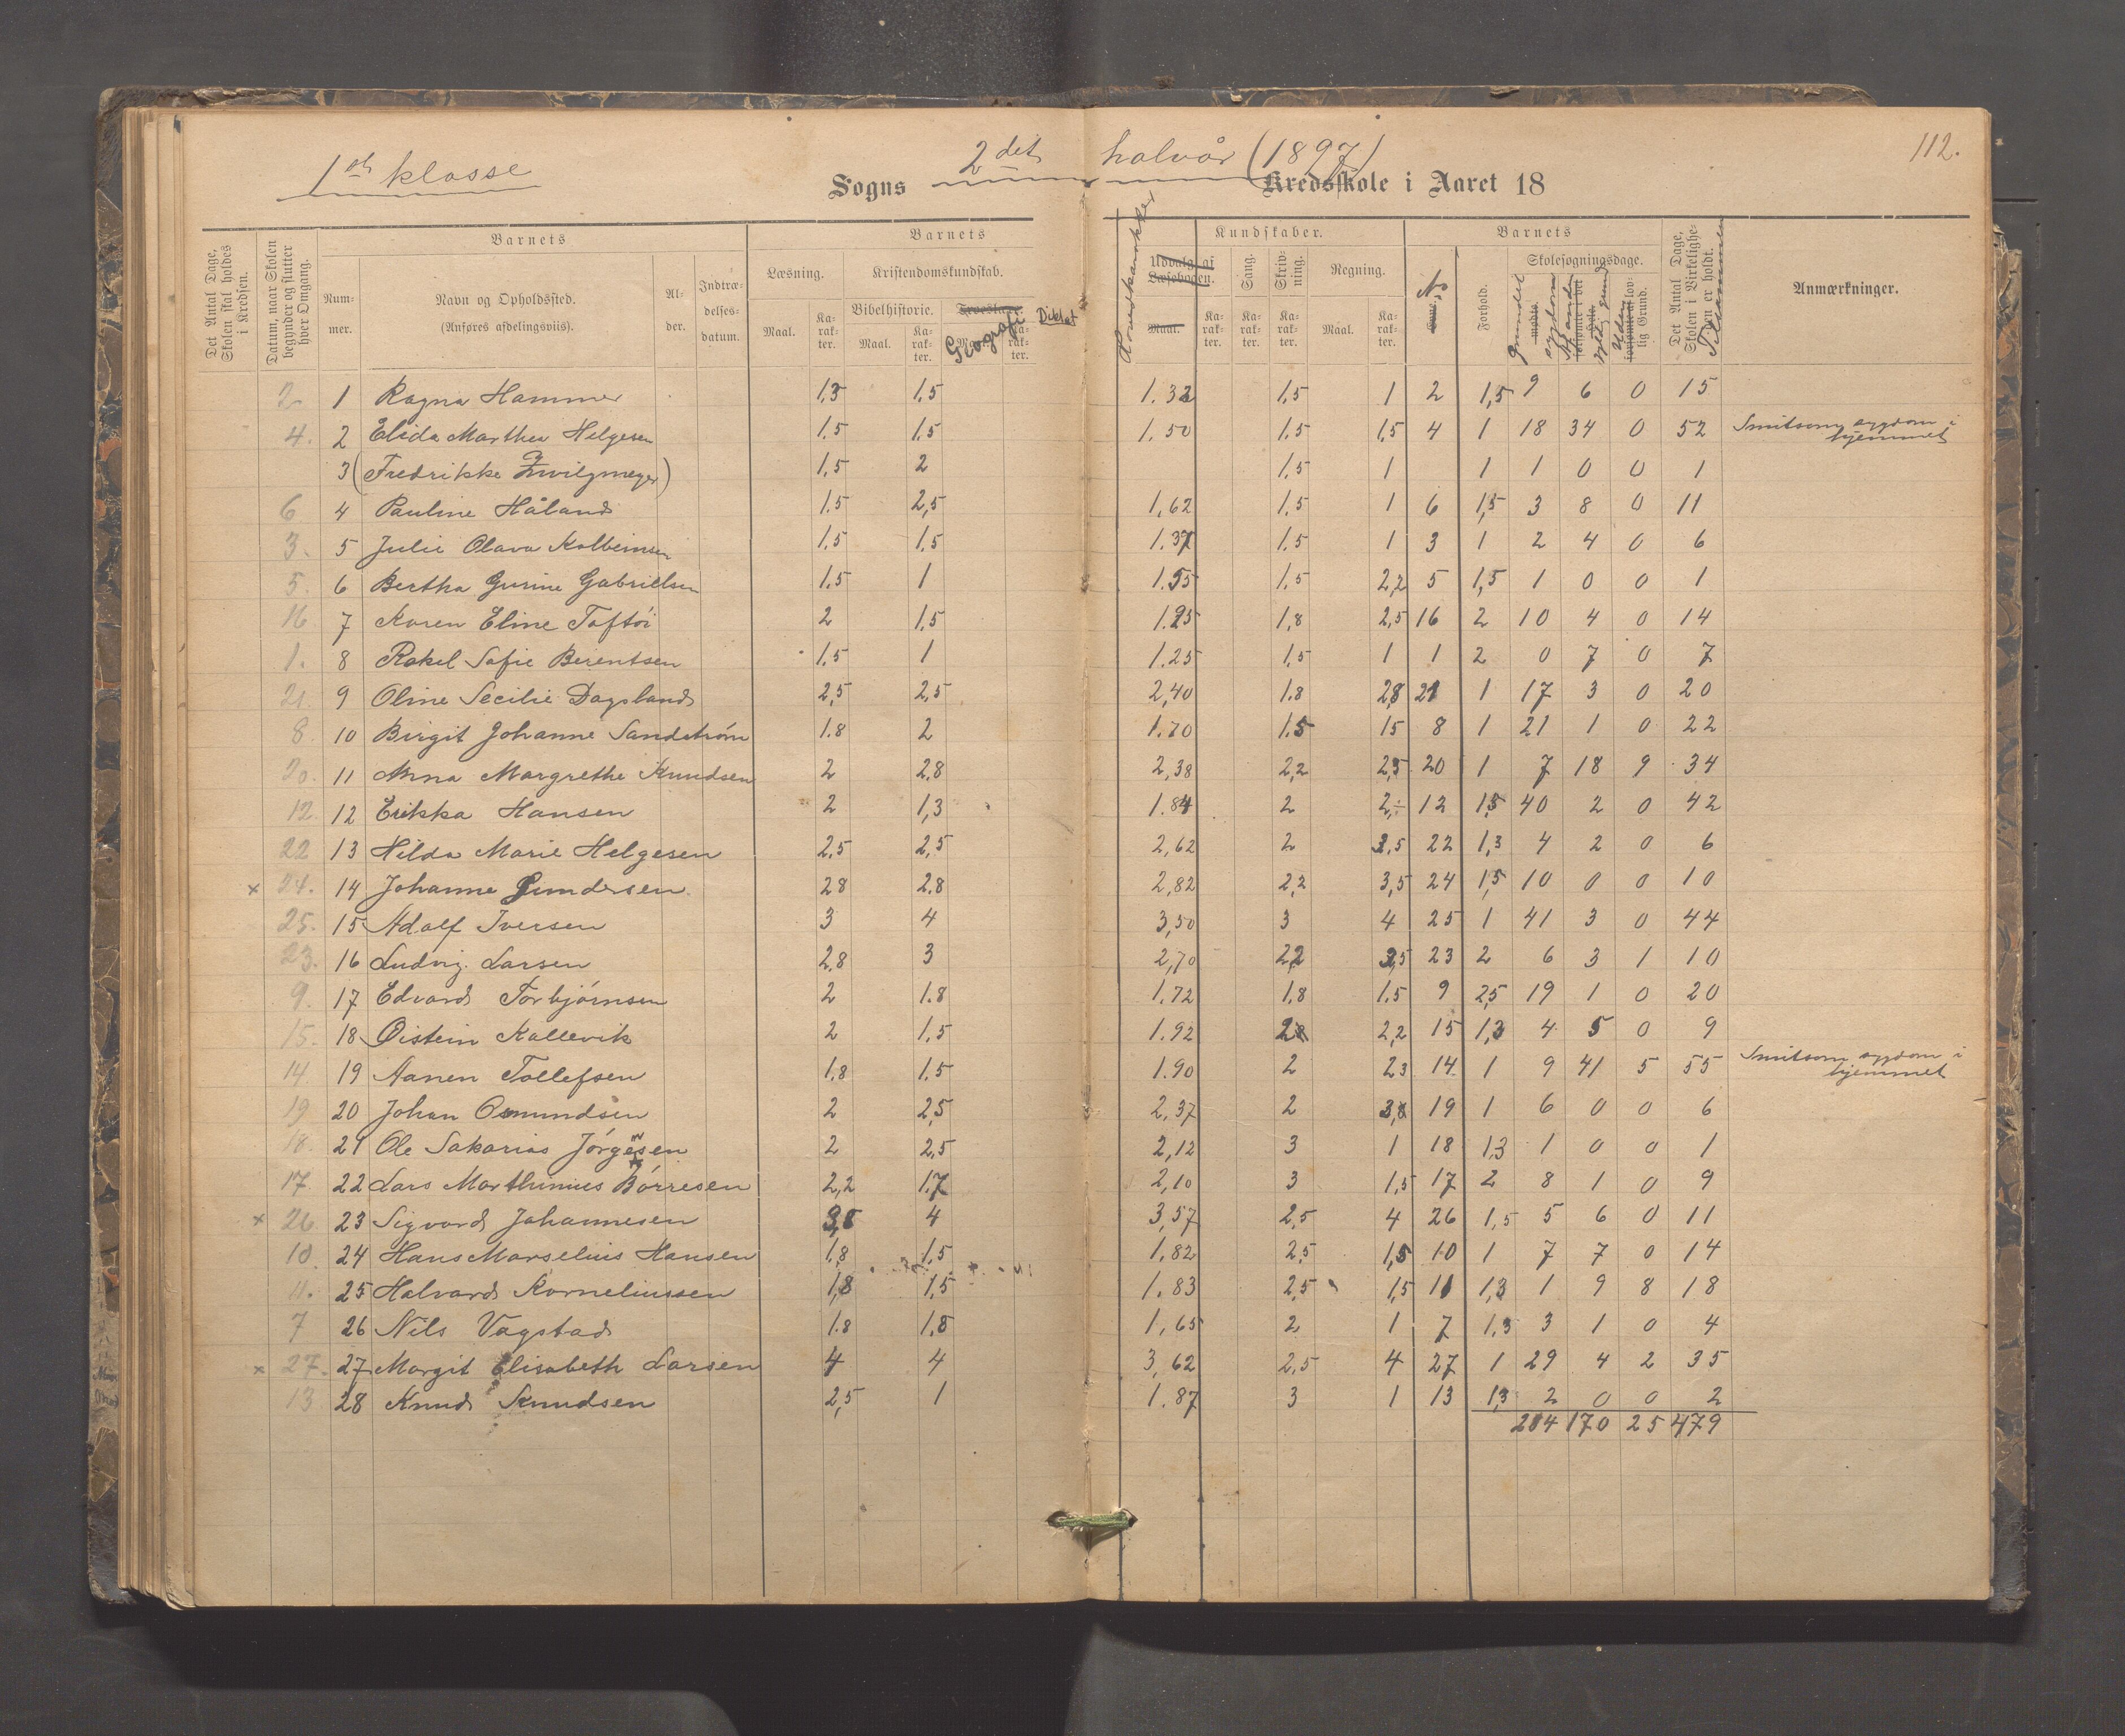 1ste klasse 2det halvår (1897) 112.
Sogns Kredsskole i Aaret 18
Det Antal Dage, Skolen skal holdes i Kredsen.
Datum, naar Skolen begynder og slutter hver Omgang.
Barnets
Num-mer.
Navn og Opholdssted. (Anføres afdelingsviis).
Al-der.
Indtræ-delses-datum.
Barnets
Læsning.
Maal. Ka-rak-ter.
Kristendomskundskab.
Bibelhistorie. Maal. Ka-rak-ter.
Troeslære. Geografi Maal. Ka-rak-ter.
Diktat
Hovedkarakter
Kundskaber.
Udvalg af Læsebogen. Maal. Ka-rak-ter.
Sang. Ka-rak-ter.
Skriv-ning. Ka-rak-ter.
Regning. Maal. Ka-rak-ter.
Barnets
No
Forhold.
Skolesøgningsdage.
mødte.
forsømte af lov-lig Grund.
Det Antal Dage, Skolen i Virkelighe-den er holdt.
Tilsammen
Anmærkninger.
2 1 Ragna Hammer 1,3 1,5 1.32 1,5 1 2 1,5 9 6 0 15
4. 2 Elida Marthea Helgesen 1,5 1,5 1,50 1,5 1,5 4 1 18 34 0 52 Smitsom sygdom i hjemmet
3 (Fredrikke Zwilgmeyer) 1,5 2 1,5 1 1 1 0 0 1
6 4 Pauline Håland 1,5 2,5 1,62 1,5 1 6 1,5 3 8 0 11
3. 5 Julie Olava Kolbeinsen 1,5 1,5 1.37 1,5 1 3 1 2 4 0 6
5. 6 Bertha Gurine Gabrielsen 1,5 1 1.55 1,5 2,2 5 1,5 1 0 0 1
16 7 Karen Eline Toftöi 2 1,5 1.95 1,8 2,5 16 2 10 4 0 14
1. 8 Rakel Sofie Berentsen 1,5 1 1.25 1,5 1 1 2 0 7 0 7
21. 9 Oline Secilie Dagsland 2,5 2,5 2,40 1.8 2,8 21 1 17 3 0 20
8. 10 Birgit Johanne Sandström 1.8 2 1.70 1.5 15 8 1 21 1 0 22
20. 11 Anna Margrethe Knudsen 2 2.8 2,38 2,2 2,5 20 1 7 18 9 34
12. 12 Erikka Hansen 2 1,3 1.84 2 2,- 12 1,5 40 2 0 42
22 13 Hilda Marie Helgesen 2,5 2,5 2,62 2 3,5 22 1,3 4 2 0 6
x 24. 14 Johanne Gundersen 28 2.8 2,82 2,2 3,5 24 1,5 10 0 0 10
25. 15 Adolf Iversen 3 4 3,50 3 4 25 1 41 3 0 44
23. 16 Ludvig Larsen 2,8 3 2,70 2,2 3,5 23 2 6 3 1 10
9. 17 Edvard Torbjörnsen 2 1.8 1.72 1,8 1.5 9 2,5 19 1 0 20
15. 18 Øistein Kallevik 2 1,5 1.92 2,8 2,2 15 1,3 4 5 0 9
14 19 Aanen Tollefsen 1,8 1,5 1.90 2 23 14 1 9 41 5 55 Smitsom sygdom i hjemmet
19 20 Johan Osmundsen 2 2,5 2,37 2 3,8 19 1 6 0 0 6
18. 21 Ole Sakarias Jörgensen 2 2,5 2,12 3 1 18 1,3 1 0 0 1
17. 22 Lars Marthinius Börresen 2,2 1.7 2,10 3 1,5 17 2 8 1 0 9
x 26 23 Sigvard Johannesen 3,5 4 3,57 2,5 4 26 1,5 5 6 0 11
10. 24 Hans Marselius Hansen 1,8 1,5 1,82 2,5 1,5 10 1 7 7 0 14
11. 25 Halvard Korneliussen 1,8 1,5 1.83 2,5 1,5 11 1,3 1 9 8 18
7 26 Nils Vagstad 1.8 1,8 1,65 2 1 7 1,3 3 1 0 4
x 27. 27 Margit Elisabeth Larsen 4 4 3,62 2,5 4 27 1 29 4 2 35
13 28 Knud Knudsen 2,5 1 1.87 3 1 13 1,3 2 0 0 2
284 170 25 479